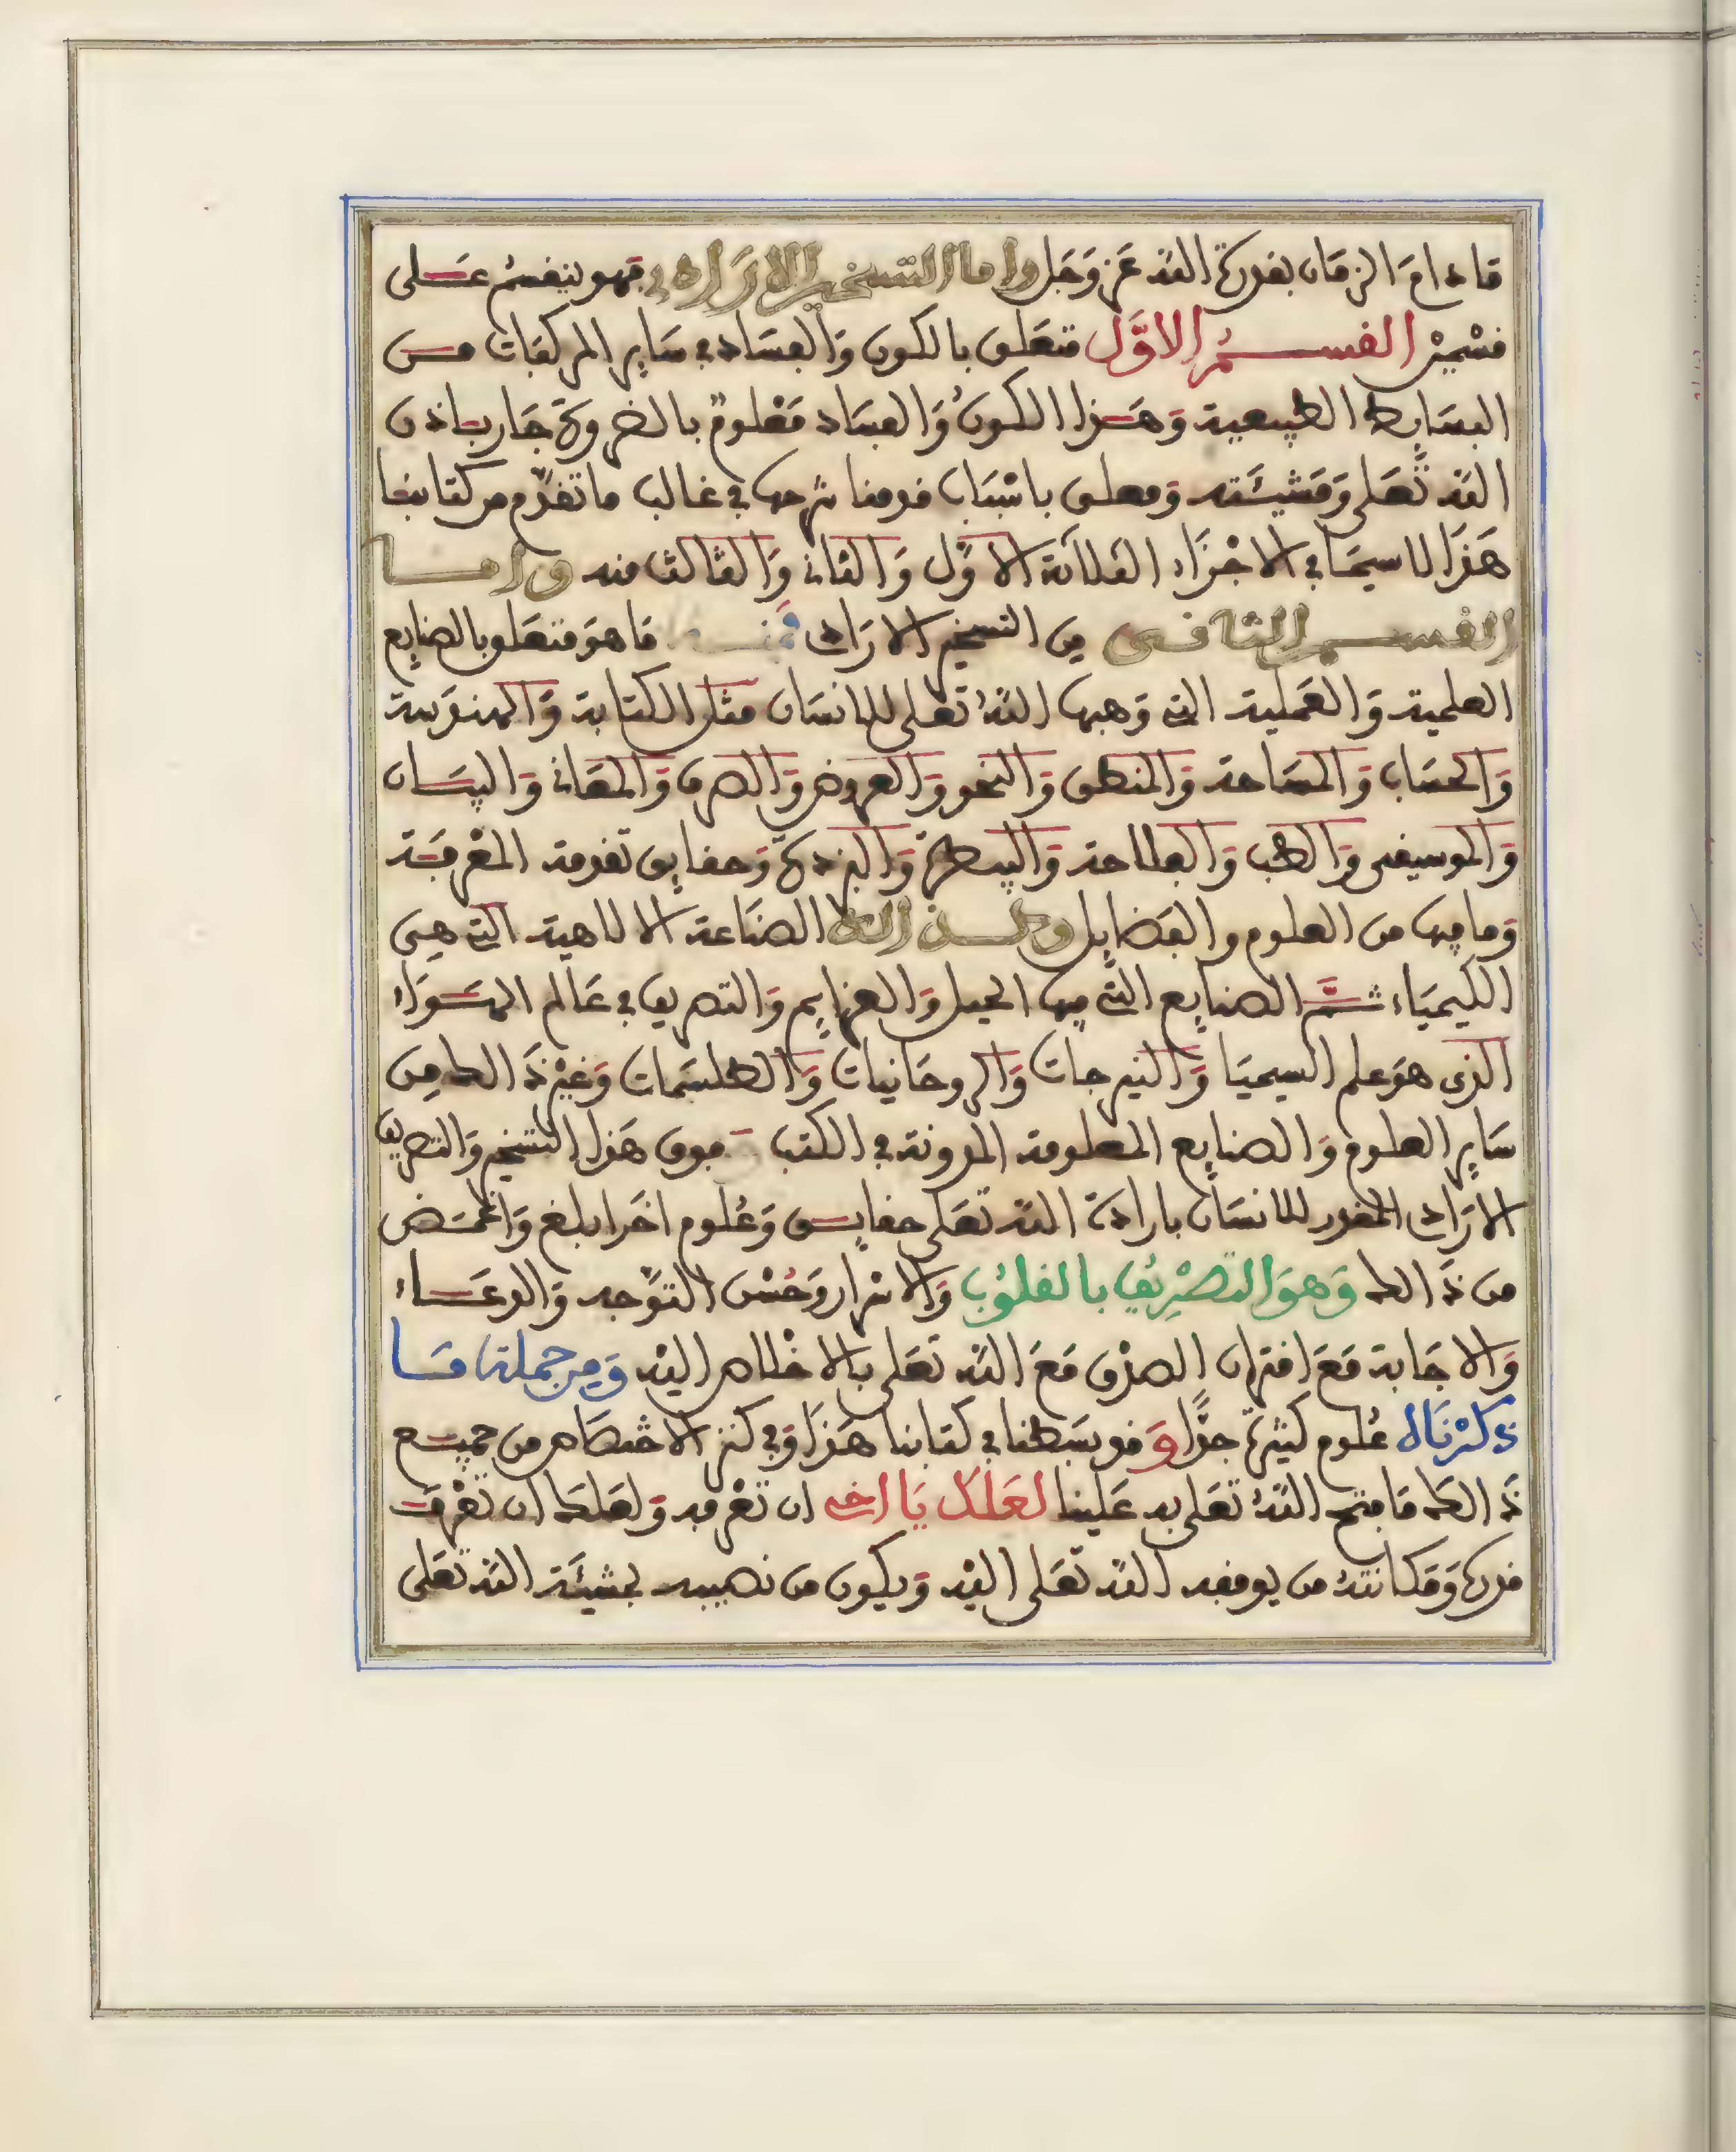 ما دام الزمان بقدرة الله عز وجل واما التسخير الارادي فهو ينقسم على
قسمين القسم الاول متعلق بالكون والفساد في ساير المركبات من
البسايط الطبيعية وهذا الكون والفساد معلوم بالضرورة جار باذن
الله تعلى ومشيئته ومعلق باسباب قدمنا شرحها في غالب ما تقدم من كتابنا
هذا لا سيما في الاجزاء الثلاثة الاول والثاني والثالث منه واما
القسم الثاني من التسخير الارادي فمنه ما هو متعلق بالصنايع
العلمية والعملية التي وهبها الله تعلى للانسان مثل الكتابة والهندسة
والحساب والمساحة والمنطق والنحو والعروض والصرف والمعاني والبيان
والموسيقى والطب والفلاحة والبيطرة والبزدرة وحقايق تقدمة المعرفة
وما فيها من العلوم والفضايل الصناعة الالاهية التي هي
الكيمياء ثم الصنايع التي فيها الحيل والعزايم والتصريف في عالم الهواء
الذي هو علم السيميا والنيرجات والروحانيات والطلسمات وغير ذالك من
ساير العلوم والصنايع المعلومة المدونة في الكتب وفوق هذا التسخير والتصريف
الارادي المقدر للانسان بارادة الله تعلى حقايق وعلوم اخر ابلغ واغمض
من ذالك وهو التصريف بالقلوب والاسرار وحسن التوجه والدعاء
والاجابة مع اقتران الصدق مع الله تعلى بالاخلاص اليه ومن جملة ما
ذكرناه علوم كثيرة جدا وقد بسطنا في كتابنا هذا وفي كنز الاختصاص من جميع
ذالك ما فتح الله تعلى به علينا لعلك يا اخي ان تعرفه ولعلك ان تعرف
قدره ومكانته من يوفقه الله تعلى اليه ويكون من نصيبه بمشيئة الله تعلى